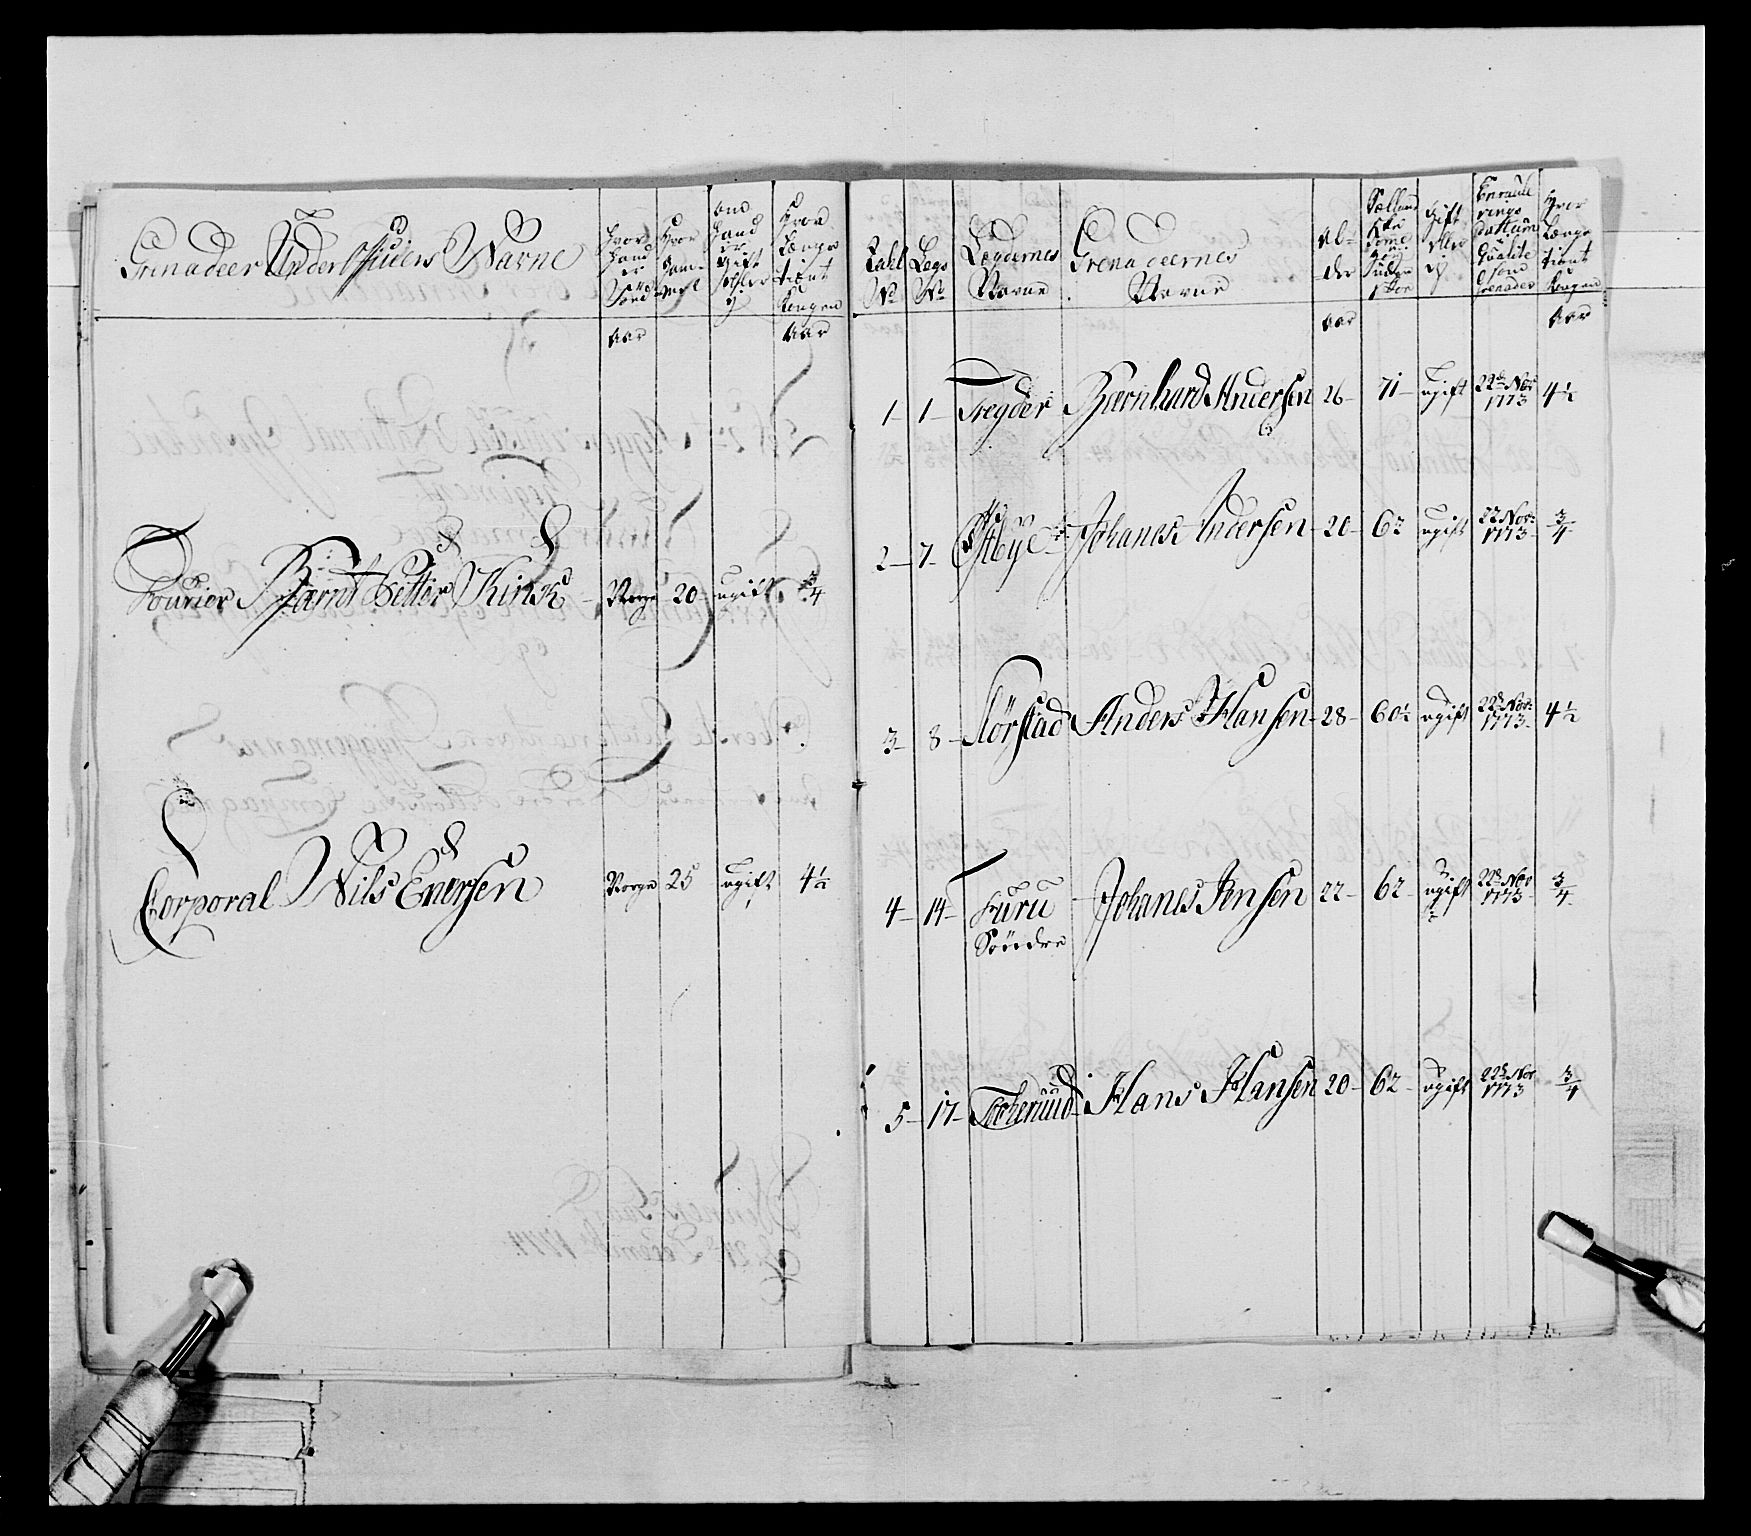 Grenadeer Under Officiers Navne
Hvor
Hand
er
Föd
Hvor
Gam-
mel
om
Hand
er
Gift
eller
ey
Hvor
længe
tient
Kongen
Aar
Aar
Fourier Bærnt Petter Kinck Norge 20 ugift 3/4
Corporal Nils Enersen Norge 25 ugift 4 1/2
Tahl
No
Legs
No
Lægdernes
Navne
Grenadeernes
Navne
Al-
der
Gift
eller
ey
Hvor
længe
tient
Kongen
Aar
Aar
1 1 Tregder Bernhard Andersen 26 71 ugift 22de Nov 1773 4 1/2
2 7 Østbye Johanes Andersen 20 62 ugift 22 Nov: 1773 3/4
3 8 Körstad Anders Hansen 28 60 1/2 ugift 22de Nov: 1773 4 1/2
4 14 Furu Johanes Jensen 22 62 ugift 22de Nov 1773 3/4
Söndre
5 17 Hans Hansen 20 62 ugift 22de Nov 1773 3/4